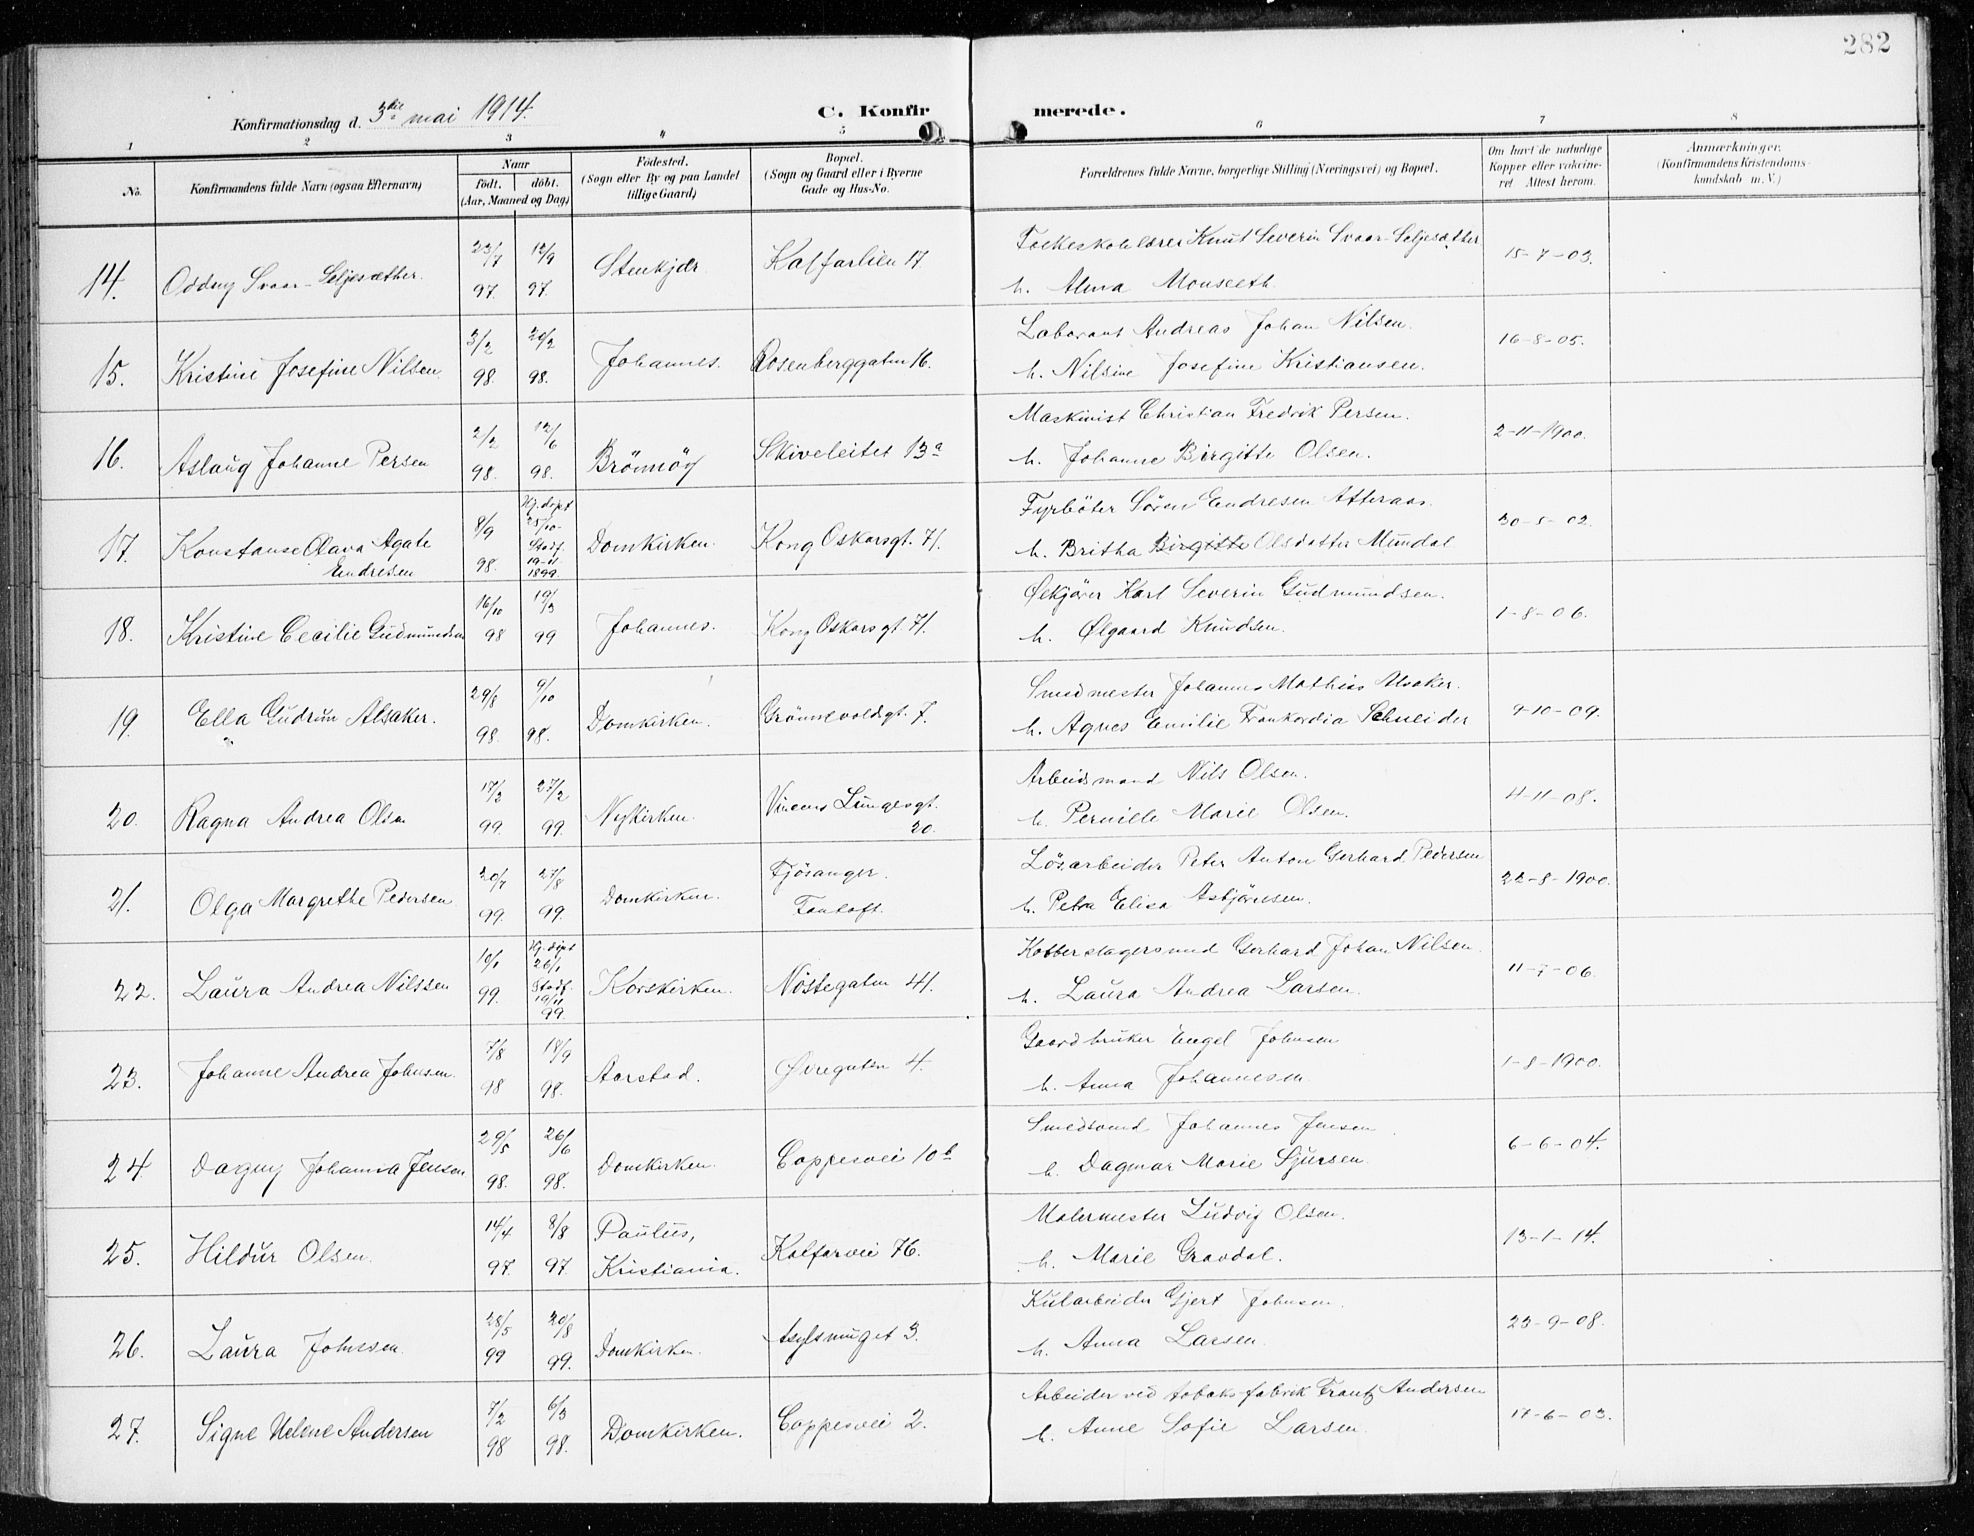 282
Konfirmationsdag d. 3die mai 1914.
C. Konfirmerede.
1 2 3 4 5 6 7 8
No.
Konfirmandens fulde Navn (ogsaa Efternavn)
Naar
født. døbt.
(Aar, Maaned og Dag)
Fødested.
(Sogn eller By og paa Landet
tillige Gaard)
Bopæl.
(Sogn og Gaard eller i Byerne
Gade og Hus-No.
Forældrenes fulde Navne, borgerlige Stilling (Næringsvei) og Bopæl.
Om havt de naturlige
Kopper eller vakcine-
ret Attest herom.
Anmærkninger.
(Konfirmandens Kristendoms-
kundskab m. V.)
14. Oddny Svaar-Seljesæther. 23/7 97. 12/9 97. Stenkjær Kalfarlien 17.
Folkeskolelærer Knut Severin Svaar-Seljesæther
h. Alma Monseth. 15-7-03.
15. Kristine Josefine Nilsen. 3/2 98. 20/2 98. Johannes. Rosenberggaten 16.
Laborant Andreas Johan Nilsen.
h. Nilsine Josefine Kristiansen. 16-8-05.
16. Aslaug Johanne Persen 2/2 98. 12/6 98. Brønnøy Skiveleitet 13a
Maskinist Christian Fredrik Persen.
h. Johanne Birgitte Olsen. 2-11-1900.
17. Konstanse Olava Agate
Endresen 8/9 98. Hj. døpt 25/10- Stadf. 19-11- 1899. Domkirken. Kong Oskarsgt. 71.
Fyrbøter Søren Endresen Atteraas.
h. Britha Birgitte Olsdotter Mundal 30-5-02.
18. Kristine Cecilie Gudmundsen 16/10 98 19/3 99 Johannes. Kong Oskarsgt. 71.
Ølkjører Karl Severin Gudmundsen.
h. Ølgaard Knudsen. 1-8-06.
19. Ella Gudrun Alsaker. 29/8 98. 9/10 98. Domkirken. Grønnevoldsgt. 7.
Smedmester Johannes Mathias Alsaker.
h. Agnes Emilie Frankordia Schneider 9-10-09.
20. Ragna Andrea Olsen 17/2 99. 27/2 99. Nykirken. Vincens Lungesgt.
20.
Arbeidsmand Nils Olsen.
h. Pernille Marie Olsen. 4-11-08.
21. Olga Margrethe Pedersen 20/7 99. 27/8 99. Domkirken. Fjøsanger.
Fantoft.
Løsarbeider Peter Anton Gerhard Pedersen
h. Petra Elisa Asbjørnsen. 22-8-1900.
22. Laura Andrea Nilssen 10/1 99. Hj. døpt 26/1 Stadf. 19/11 99. Korskirken. Nøstegaten 41.
Kobberslagersvend Gerhard Johan Nilsen.
h. Laura Andrea Larsen. 11-7-06.
23. Johanne Andrea Johnsen. 7/8 98 18/9 98. Aarstad. Øvregaten 4.
Gaardbruker Engel Johnsen
h. Anna Johannesen. 1-8-1900.
24. Dagny Johanna Jensen 29/5 98. 26/6 98. Domkirken. Coppesvei 10b
Smedsvend Johannes Jensen.
h. Dagmar Marie Sjursen. 6-6-04.
25. Hildur Olsen. 14/4 97. 8/8 97. Paulus,
Kristiania. Kalfarvei 76.
Malermester Ludvig Olsen.
h. Marie Gravdal. 13-1-14.
26. Laura Johnsen. 28/5 99 20/8 99. Domkirken. Asylsmuget 3.
Kularbeider Gjert Johnsen.
h. Anna Larsen. 23-9-08.
27. Signe Helene Andersen 7/2 98 6/3 98. Domkirken. Coppesvei 2.
Arbeider ved tobaksfabrik Frantz Andersen
h. Anne Sofie Larsen. 17-6-03.